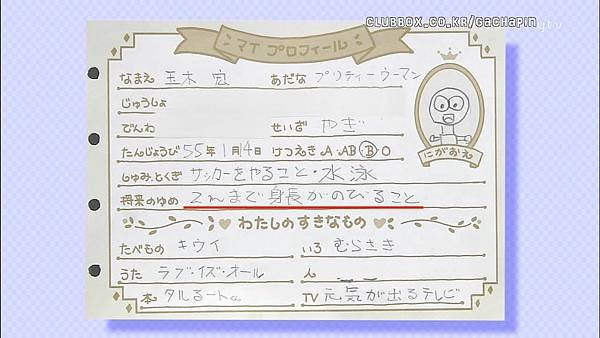 CLUBBOX.CO.KR/GACHAPIN ytv
マイ プロフィール
なまえ 玉木 宏 あだな プリティーウーマン
じゅうしょ
でんわ せいざ やぎ
たんじょうび 55年1月14日 けつえき A・AB・B・O
にがおえ
しゅみ・とくぎ サッカーをやること・水泳
将来のゆめ 2mまで身長がのびること
わたしのすきなもの
たべもの キウイ いろ むらさき
うた ラブ・イズ・オール 人
本 タルるートα TV 元気が出るテレビ